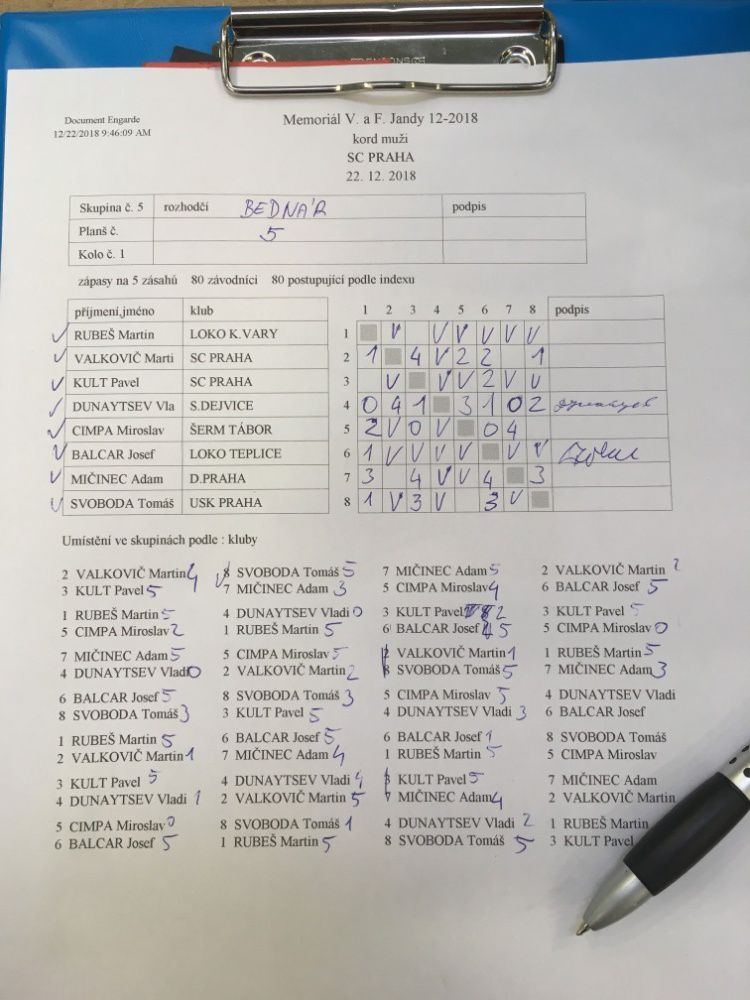 Document Engarde
12/22/2018 9:46:09 AM
Memoriál V. a F. Jandy 12-2018
kord muži
SC PRAHA
22. 12. 2018
Skupina č. 5 rozhodčí BEDNÁR podpis
Planš č. 5
Kolo č. 1
zápasy na 5 zásahů 80 závodníci 80 postupující podle indexu
příjmení,jméno klub 1 2 3 4 5 6 7 8 podpis
RUBEŠ Martin LOKO K.VARY 1 V V V V V V
VALKOVIČ Marti SC PRAHA 2 1 4 V 2 2 1
KULT Pavel SC PRAHA 3 V V V 2 V V
DUNAYTSEV Vla S.DEJVICE 4 0 4 1 3 1 0 2
CIMPA Miroslav ŠERM TÁBOR 5 2 V 0 V 0 4
BALCAR Josef LOKO TEPLICE 6 1 V V V V V V
MIČINEC Adam D.PRAHA 7 3 4 V V 4 3
SVOBODA Tomáš USK PRAHA 8 1 V 3 V 3 V
Umístění ve skupinách podle : kluby
2 VALKOVIČ Martin 4
3 KULT Pavel 5
1 RUBEŠ Martin 5
5 CIMPA Miroslav 2
7 MIČINEC Adam 5
4 DUNAYTSEV Vladi 0
6 BALCAR Josef 5
8 SVOBODA Tomáš 3
1 RUBEŠ Martin 5
2 VALKOVIČ Martin 1
3 KULT Pavel 5
4 DUNAYTSEV Vladi 1
5 CIMPA Miroslav 0
6 BALCAR Josef 5
8 SVOBODA Tomáš 5
7 MIČINEC Adam 3
4 DUNAYTSEV Vladi 0
1 RUBEŠ Martin 5
5 CIMPA Miroslav 5
2 VALKOVIČ Martin 2
8 SVOBODA Tomáš 3
3 KULT Pavel 5
6 BALCAR Josef 5
7 MIČINEC Adam 4
4 DUNAYTSEV Vladi 4
2 VALKOVIČ Martin 5
8 SVOBODA Tomáš 1
1 RUBEŠ Martin 5
7 MIČINEC Adam 5
5 CIMPA Miroslav 4
3 KULT Pavel 2
6 BALCAR Josef 5
2 VALKOVIČ Martin 1
8 SVOBODA Tomáš 5
5 CIMPA Miroslav 5
4 DUNAYTSEV Vladi 3
6 BALCAR Josef 1
1 RUBEŠ Martin 5
3 KULT Pavel 5
7 MIČINEC Adam 4
4 DUNAYTSEV Vladi 2
8 SVOBODA Tomáš 5
2 VALKOVIČ Martin 2
6 BALCAR Josef 5
3 KULT Pavel 5
5 CIMPA Miroslav 0
1 RUBEŠ Martin 5
7 MIČINEC Adam 3
4 DUNAYTSEV Vladi
6 BALCAR Josef
8 SVOBODA Tomáš
5 CIMPA Miroslav
7 MIČINEC Adam
2 VALKOVIČ Martin
1 RUBEŠ Martin
3 KULT Pavel